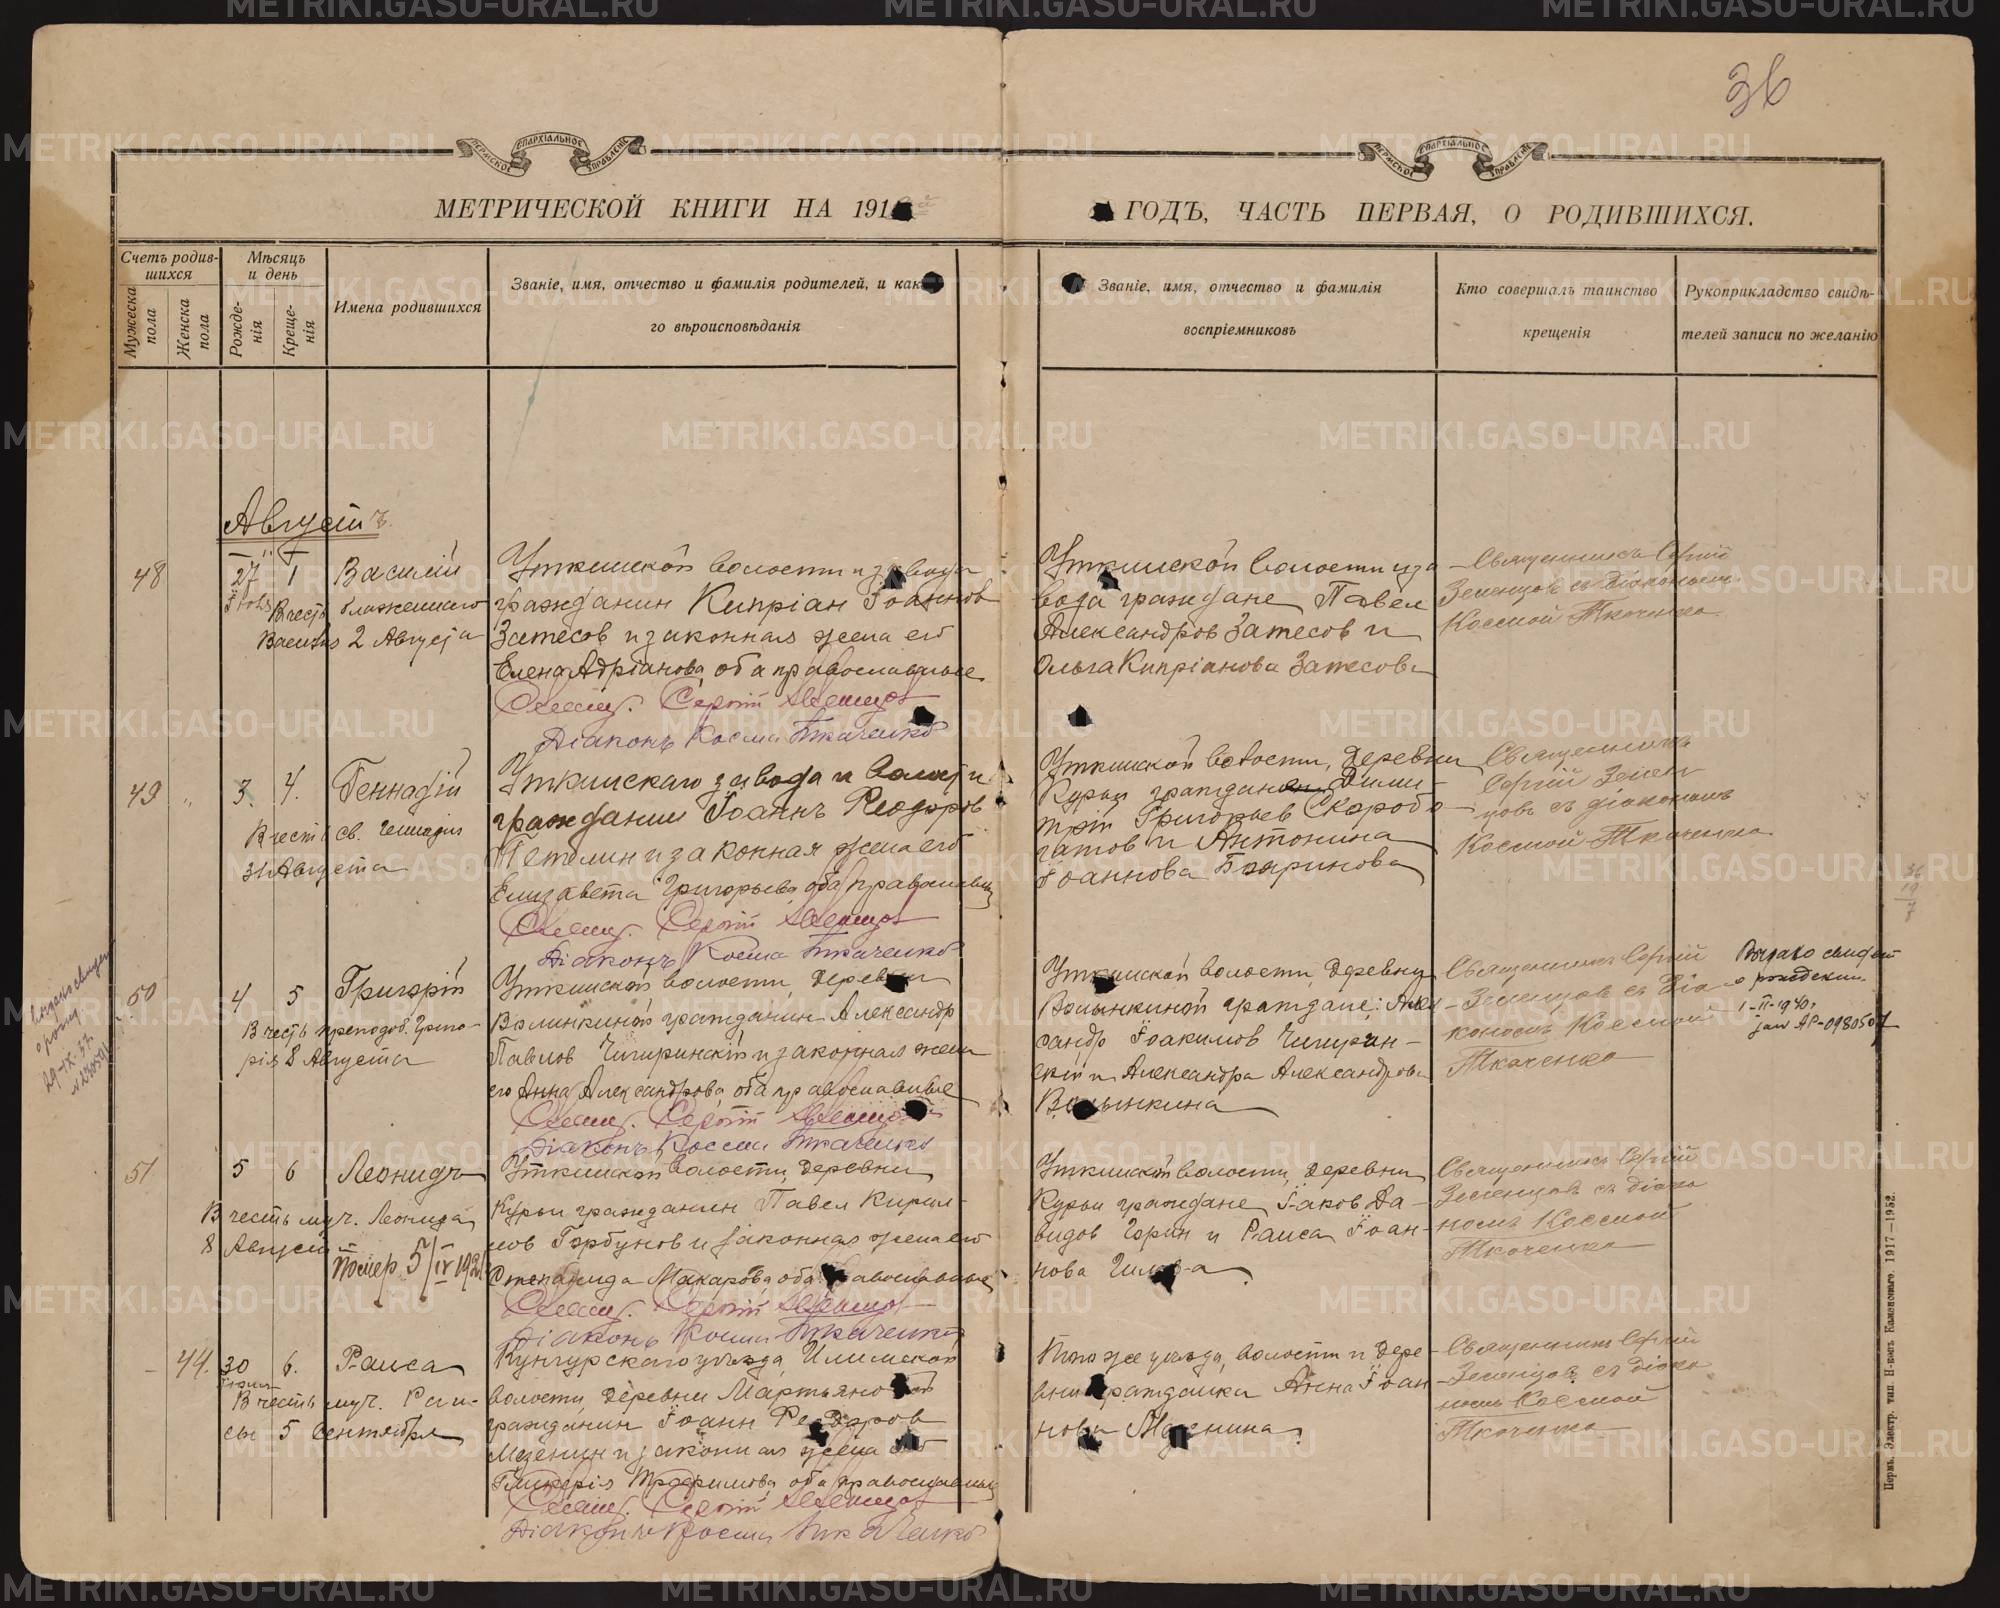 36
ПЕРМСКОЕ ЕПАРХІАЛЬНОЕ УПРАВЛЕНІЕ
ПЕРМСКОЕ ЕПАРХІАЛЬНОЕ УПРАВЛЕНІЕ
МЕТРИЧЕСКОЙ КНИГИ НА 191
ГОДЪ, ЧАСТЬ ПЕРВАЯ, О РОДИВШИХСЯ.
Счетъ родив-
шихся
Мужеска
пола
Женска
пола
Мѣсяцъ
и день
Рожде-
нія
Креще-
нія
Имена родившихся
Званіе, имя, отчество и фамилія родителей, и како-
го вѣроисповѣданія
Званіе, имя, отчество и фамилія
воспріемниковъ
Кто совершалъ таинство
крещенія
Рукоприкладство свидѣ-
телей записи по желанію
Августъ
48
27 1
Василій
Въ честь блаженнаго
Василія 2 Августа
Уткинской волости и завода
гражданин Кипріан Іоаннов
Затесов и законная жена его
Елена Адріанова, оба православные
Свящ. Сергій Зеленцов
Діаконъ Косма Ткаченко
Уткинской волости и за
вода граждане Павел
Александров Затесов и
Ольга Кипріанова Затесова
Священникъ Сергій
Зеленцовъ съ діакономъ
Космой Ткаченко
49 " 3. 4.
Геннадій
В честь св. Геннадія
31 Августа
Уткинскаго завода и волости
гражданин Іоаннъ Феодоров
и законная жена его
Елизавета Григорьева, оба православны
Свящ. Сергій Зеленцов
Діаконъ Косма Ткаченко
Уткинской волости, деревни
Курьи граждан Дими-
трій Григорьев Скоробо-
гатов и Антонина
Іоаннова Бояринова
Священникъ
Сергій Зелен
цовъ съ діакономъ
Космой Ткаченко
50
4 5
Григорій
В честь преподоб. Григо-
рія 8 Августа
Уткинской волости, деревни
Волынкиной гражданин Александр
Павлов Чигиринскій и законная жена
его Анна Александрова, оба православные
Свящ. Сергій Зеленцов
Діаконъ Косма Ткаченко
Уткинской волости, деревни
Волынкиной граждане: Алек
сандр Іоакимов Чигирин-
скій и Александра Александрова
Волынкина
Священникъ Сергій
Зеленцовъ съ діа-
кономъ Космой
Ткаченко
Выдано свидет
о рождении
1-II-1940г
51
5 6
Леонидъ
В честь муч. Леонида
8 Августа
Помер 5/IV 192
Уткинской волости, деревни
Курьи гражданин Павел Кирил-
лов Горбунов и законная жена его
Степанида Макарова, оба православные
Свящ. Сергій Зеленцов
Діаконъ Косма Ткаченко
Уткинской волости, деревни
Курьи граждане Іаков Да-
видов и Раиса Іоан-
нова
Священникъ Сергій
Зеленцовъ съ діако
номъ Космой
Ткаченко
44. 30 6.
Раиса
В честь муч. Раи-
сы 5 Сентября
Кунгурскаго уѣзда, Илимской
волости, деревни Мартьяновой
гражданин Іоанн Феодоров
Мазенин и законная жена его
Гликерія Трофимова, оба православны
Свящ. Сергій Зеленцов
Діаконъ Косма Ткаченко
Того же уѣзда, волости и дере-
вни гражданка Анна Іоан
нова Мазенина
Священникъ Сергій
Зеленцовъ съ діако
номъ Космой
Ткаченко
Пермь. Электр. тип. Н-ковъ Каменскаго. 1917—1952.
METRIKI.GASO-URAL.RU